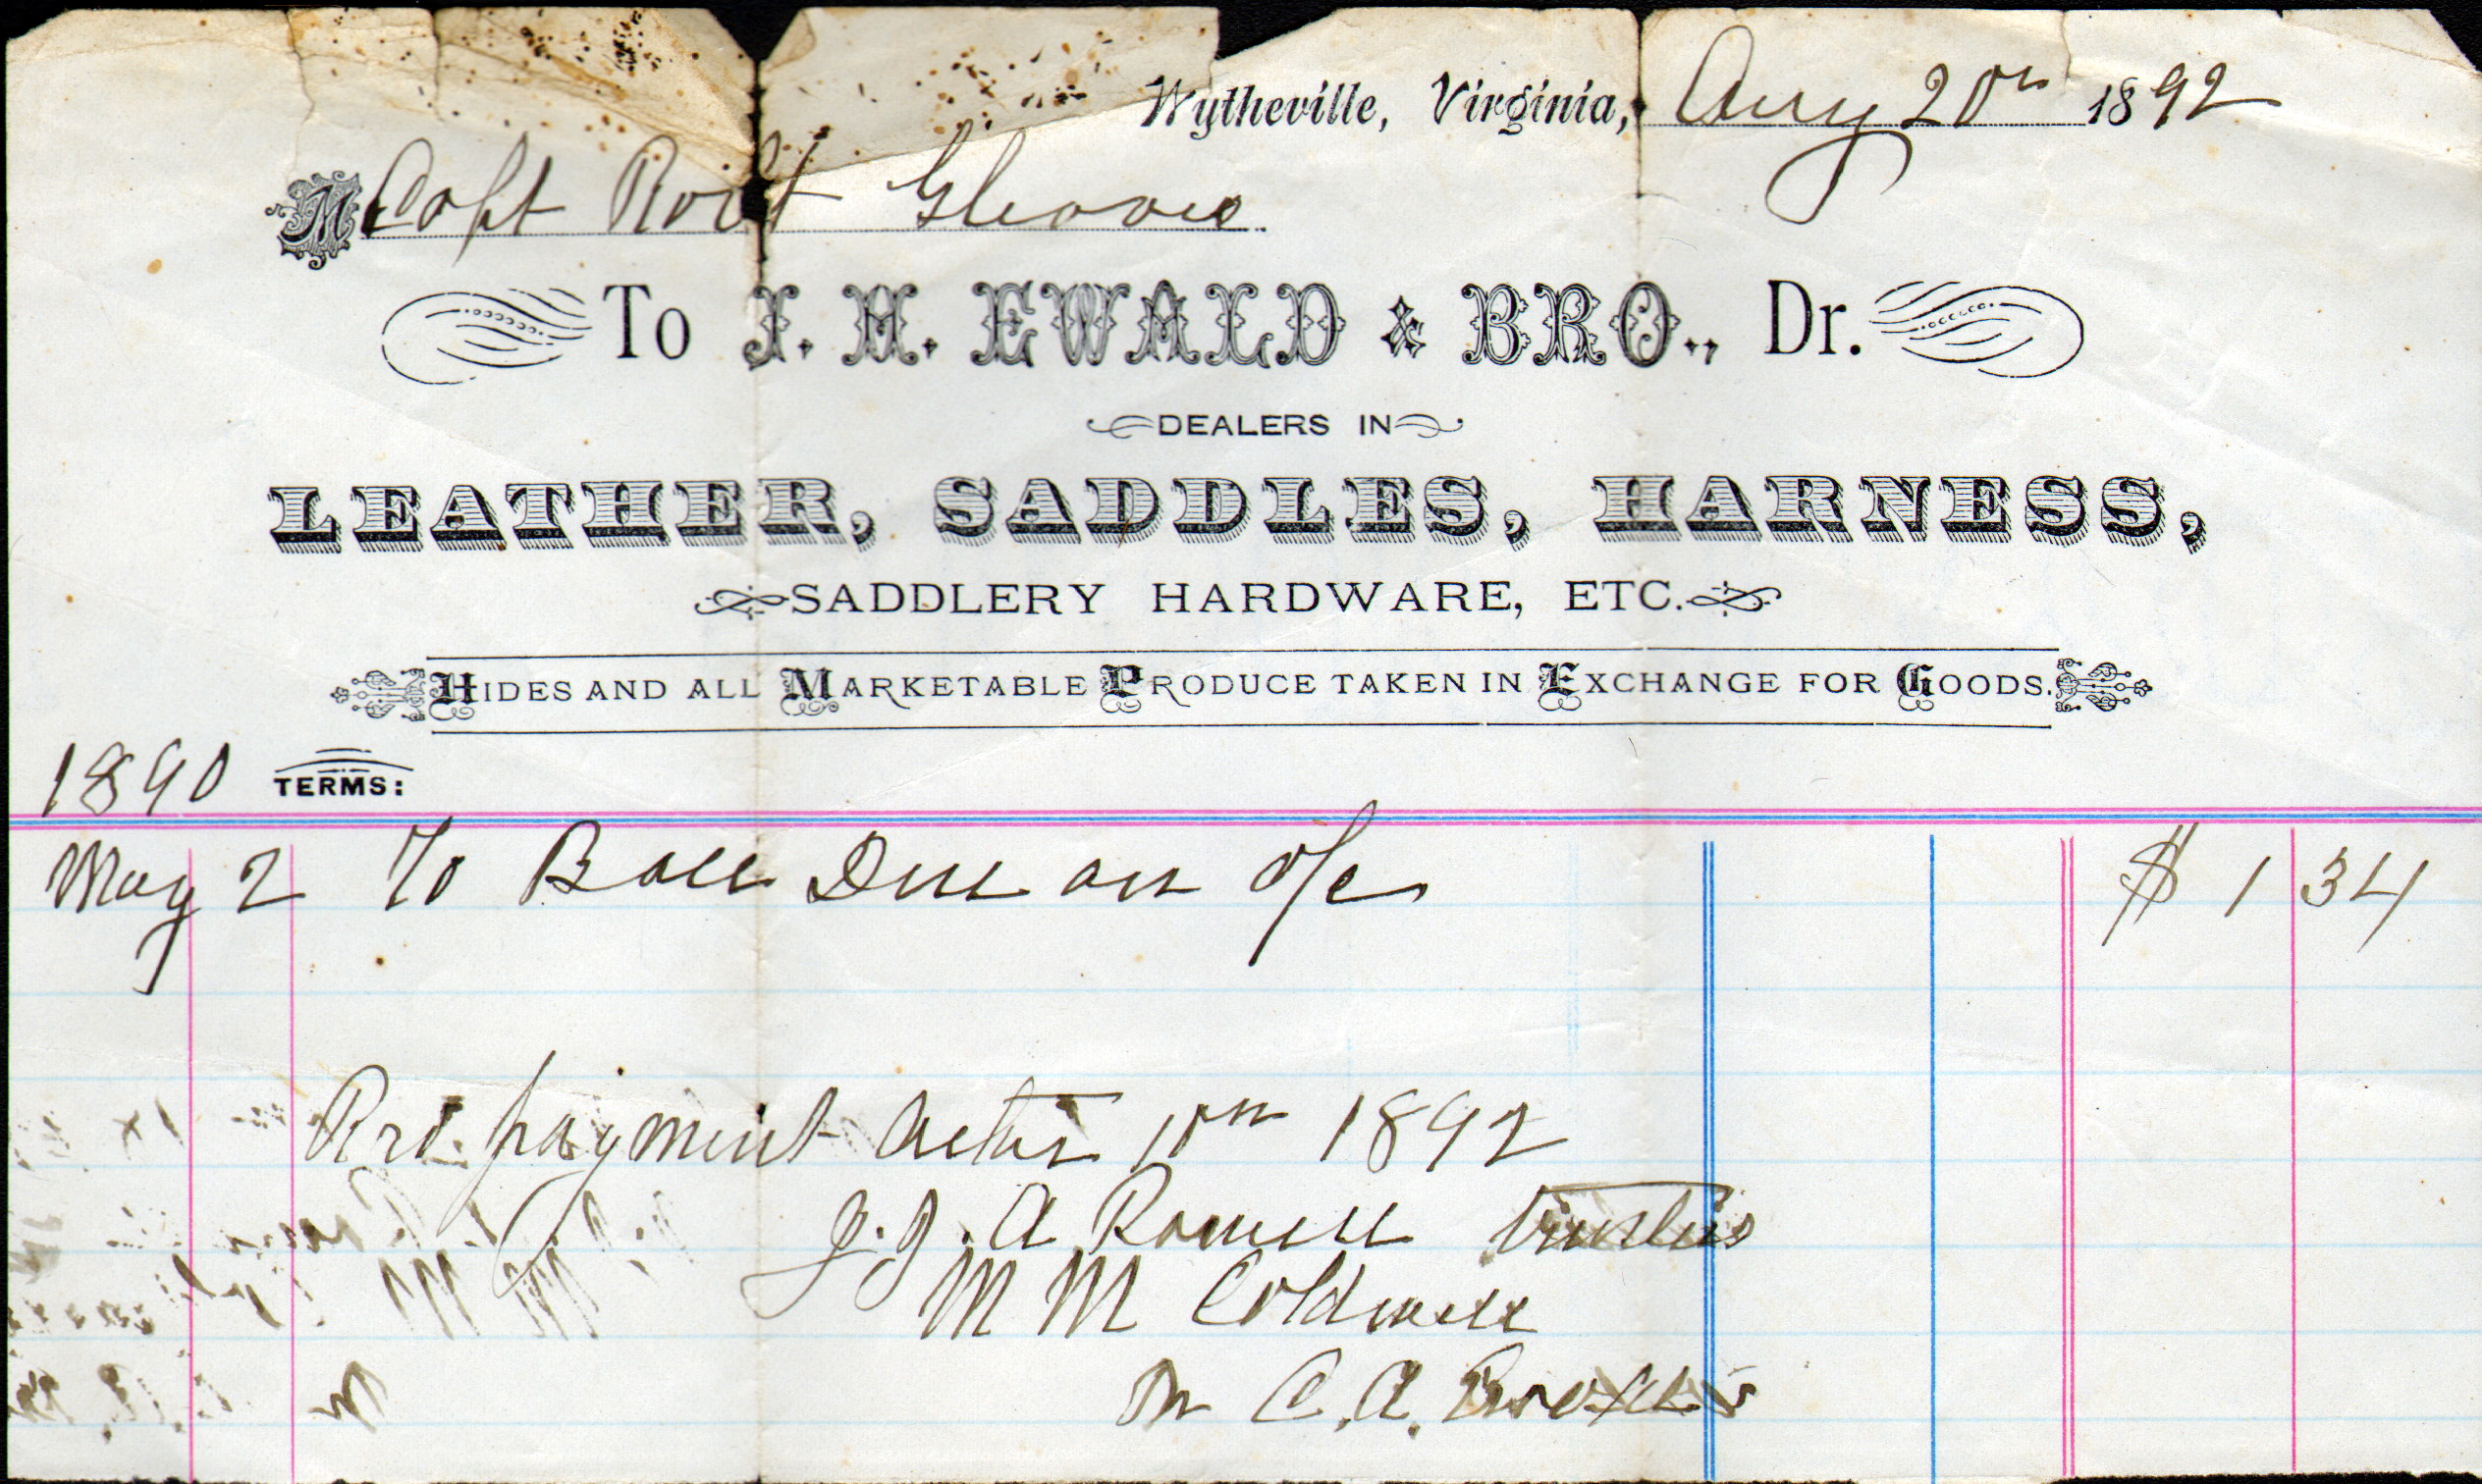 Wytheville, Virginia, Aug 20th 1892
M Capt Robt Gleaves
To J. H. EWALD & BRO., Dr.
DEALERS IN
LEATHER, SADDLES, HARNESS,
SADDLERY HARDWARE, ETC.
HIDES AND ALL MARKETABLE PRODUCE TAKEN IN EXCHANGE FOR GOODS.
1890 TERMS:
May 2 To Ball Due on a/c $ 1 34
payment 1892
J. J. A. Powell Trustees
M M Caldwell
C. A.